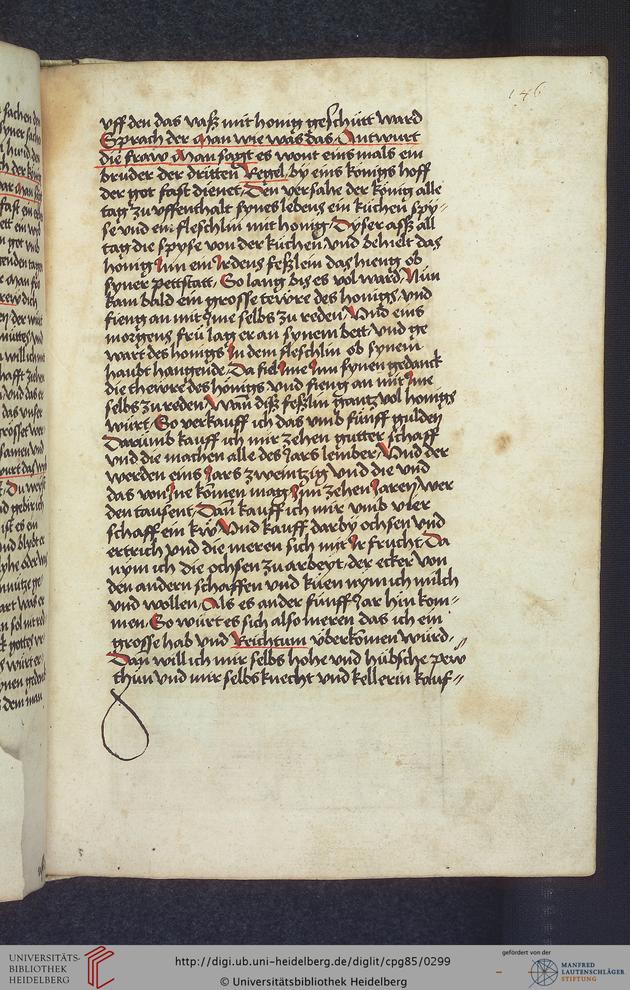 146
vff den das vaß mit honig geschutt ward
Sprach der man wie was das Antwurt
die fraw Man sagt es wont eins mals ein
bruder der dritten Regel by eins königs hoff
der got fast dienet Den versahe der König alle
tag zu vffenthalt synes lebens ein küchen spy-
se vnd ein fleschlin mit honig Dyser aß all
tag die spyse von der küchen vnd behielt das
honig Inn ein Irdens feßlein das hieng ob
syner pettstatt So lang bis es vol ward Nun
kam bald ein grosse tewre des honigs vnd
fieng an mit Ime selbs zu reden Vnd eins
morgens frü lag er an synem bett vnd ge
wart des honigs In dem fleschlin ob synem
haubt hangende Da fiel Ime Inn synen gedanck
die thewre des honigs vnd fieng an mit Ime
selbs zu reden Wann diß feßlin gantz vol honigs
würt So verkauff ich das vmb fünff gulden
Darumb kauff ich mir zehen gutter schaff
vnd die machen alle des Jars lember Vnd der
werden eins Jars zweintzig vnd die vnd
das von Ine komen mag Inn zehen Jaren wer
den tausent Dan kauff ich mir vmb vier
schaff ein kw Vnd kauff darby ochsen vnd
ertrich vnd die meren sich mit Ir frucht Da
nym ich die ochsen zu arbeyt der ecker Von
den andern schaffen vnd küen nym ich milch
vnd wollen Als es ander fünff Jar hin kom-
men So würt es sich also meren das ich ein
grosse hab vnd Reichtum überkomen würd
Dan will ich mir selbs hohe vnd hübsche zew
thun vnd mir selbs knecht vnd kellerin kauf-
UNIVERSITÄTS-
BIBLIOTHEK
HEIDELBERG
http://digi.ub.uni-heidelberg.de/diglit/cpg85/0299
© Universitätsbibliothek Heidelberg
gefördert von der
MANFRED
LAUTENSCHLÄGER
STIFTUNG